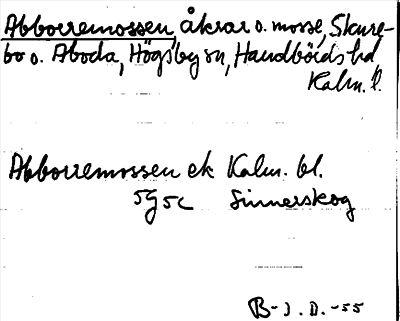 Abborremossen, åkrar o. mosse, Skure-
bo o. Aboda, Högsby sn, Handbörds hd
Kalm. l.
Abborremossen ek Kalm. bl.
5g5c Sinnerskog
B-J. D. -55